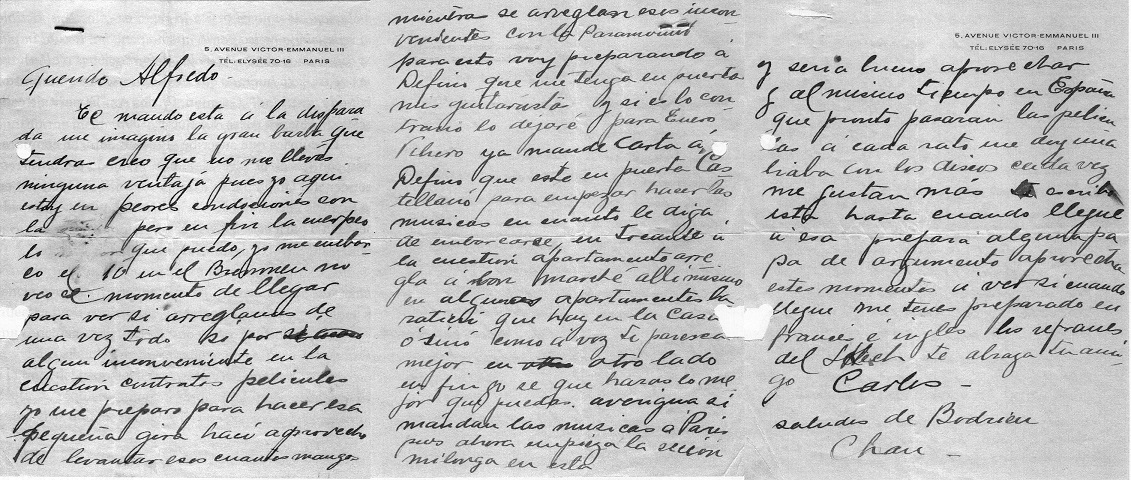 5, AVENUE VICTOR-EMMANUEL III
TÉL. ELYSÉE 70-16 PARIS
Querido Alfredo.
Te mando esta a la dispara
da me imagino la gran barba que
tendras creo que no me llevás
ninguna ventaja pues yo aqui
estoy en peores condiciones con
la pero en fin la cuerpeo
lo que puedo, yo me embar
co el 10 en el Bremen no
veo el momento de llegar
para ver si arreglamos de
una vez todo si por
algun inconveniente en la
cuestion contratos peliculas
yo me preparo para hacer esa
pequeña gira haci aprovecho
de levantar esos cuantos mangos
mientra se arreglan esos incon
venientes con la Paramount
para esto voy preparando á
Defino que me tenga en puerta
mis guitarrista y si es lo con
trario lo dejaré para Enero
Pchero ya mande carta á
Defino que este en puerta Cas
tellano para empezar hacer las
musicas en cuanto le diga
de embarcarse, en trcante a
la cuestion apartamento arre
gla á bon marché alli mismo
en algunos apartamentos ba
ratieri que hay en la casa
ó sinó como a voz ti paresca
mejor en otro lado
en fin yo se que haras lo me
jor que puedas. averigua si
mandan las musicas a Paris
pues ahora empieza la
milonga en esta
5, AVENUE VICTOR-EMMANUEL III
TÉL. ELYSÉE 70-16 PARIS
y seria bueno aprovechar
y al mismo tiempo en España
que pronto pasaran las pelicu
las a cada rato me doy una
biaba con los discos cada vez
me gustan más escribi
ista hasta cuando llegue
a esa prepara alguna pa
pa de argumento aprovecha
estos momentos a ver si cuando
llegue me tenes preparado en
francé é inglés los refranes
del Skech te abraza tu ami
go Carlos -
saludos de Bodrieu
Chau -